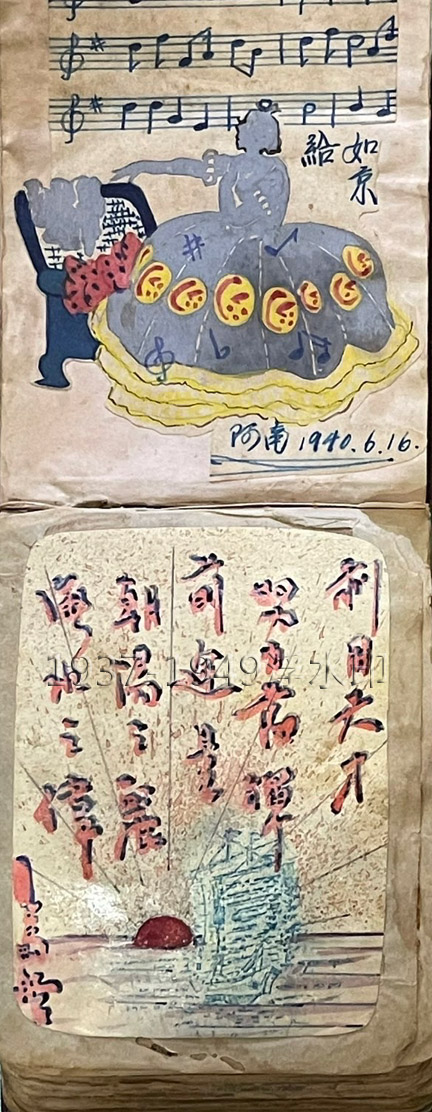 給
如京
阿南 1940.6.16.
利用天才
努力彈
前途是
朝陽之麗
之偉
1937-1949